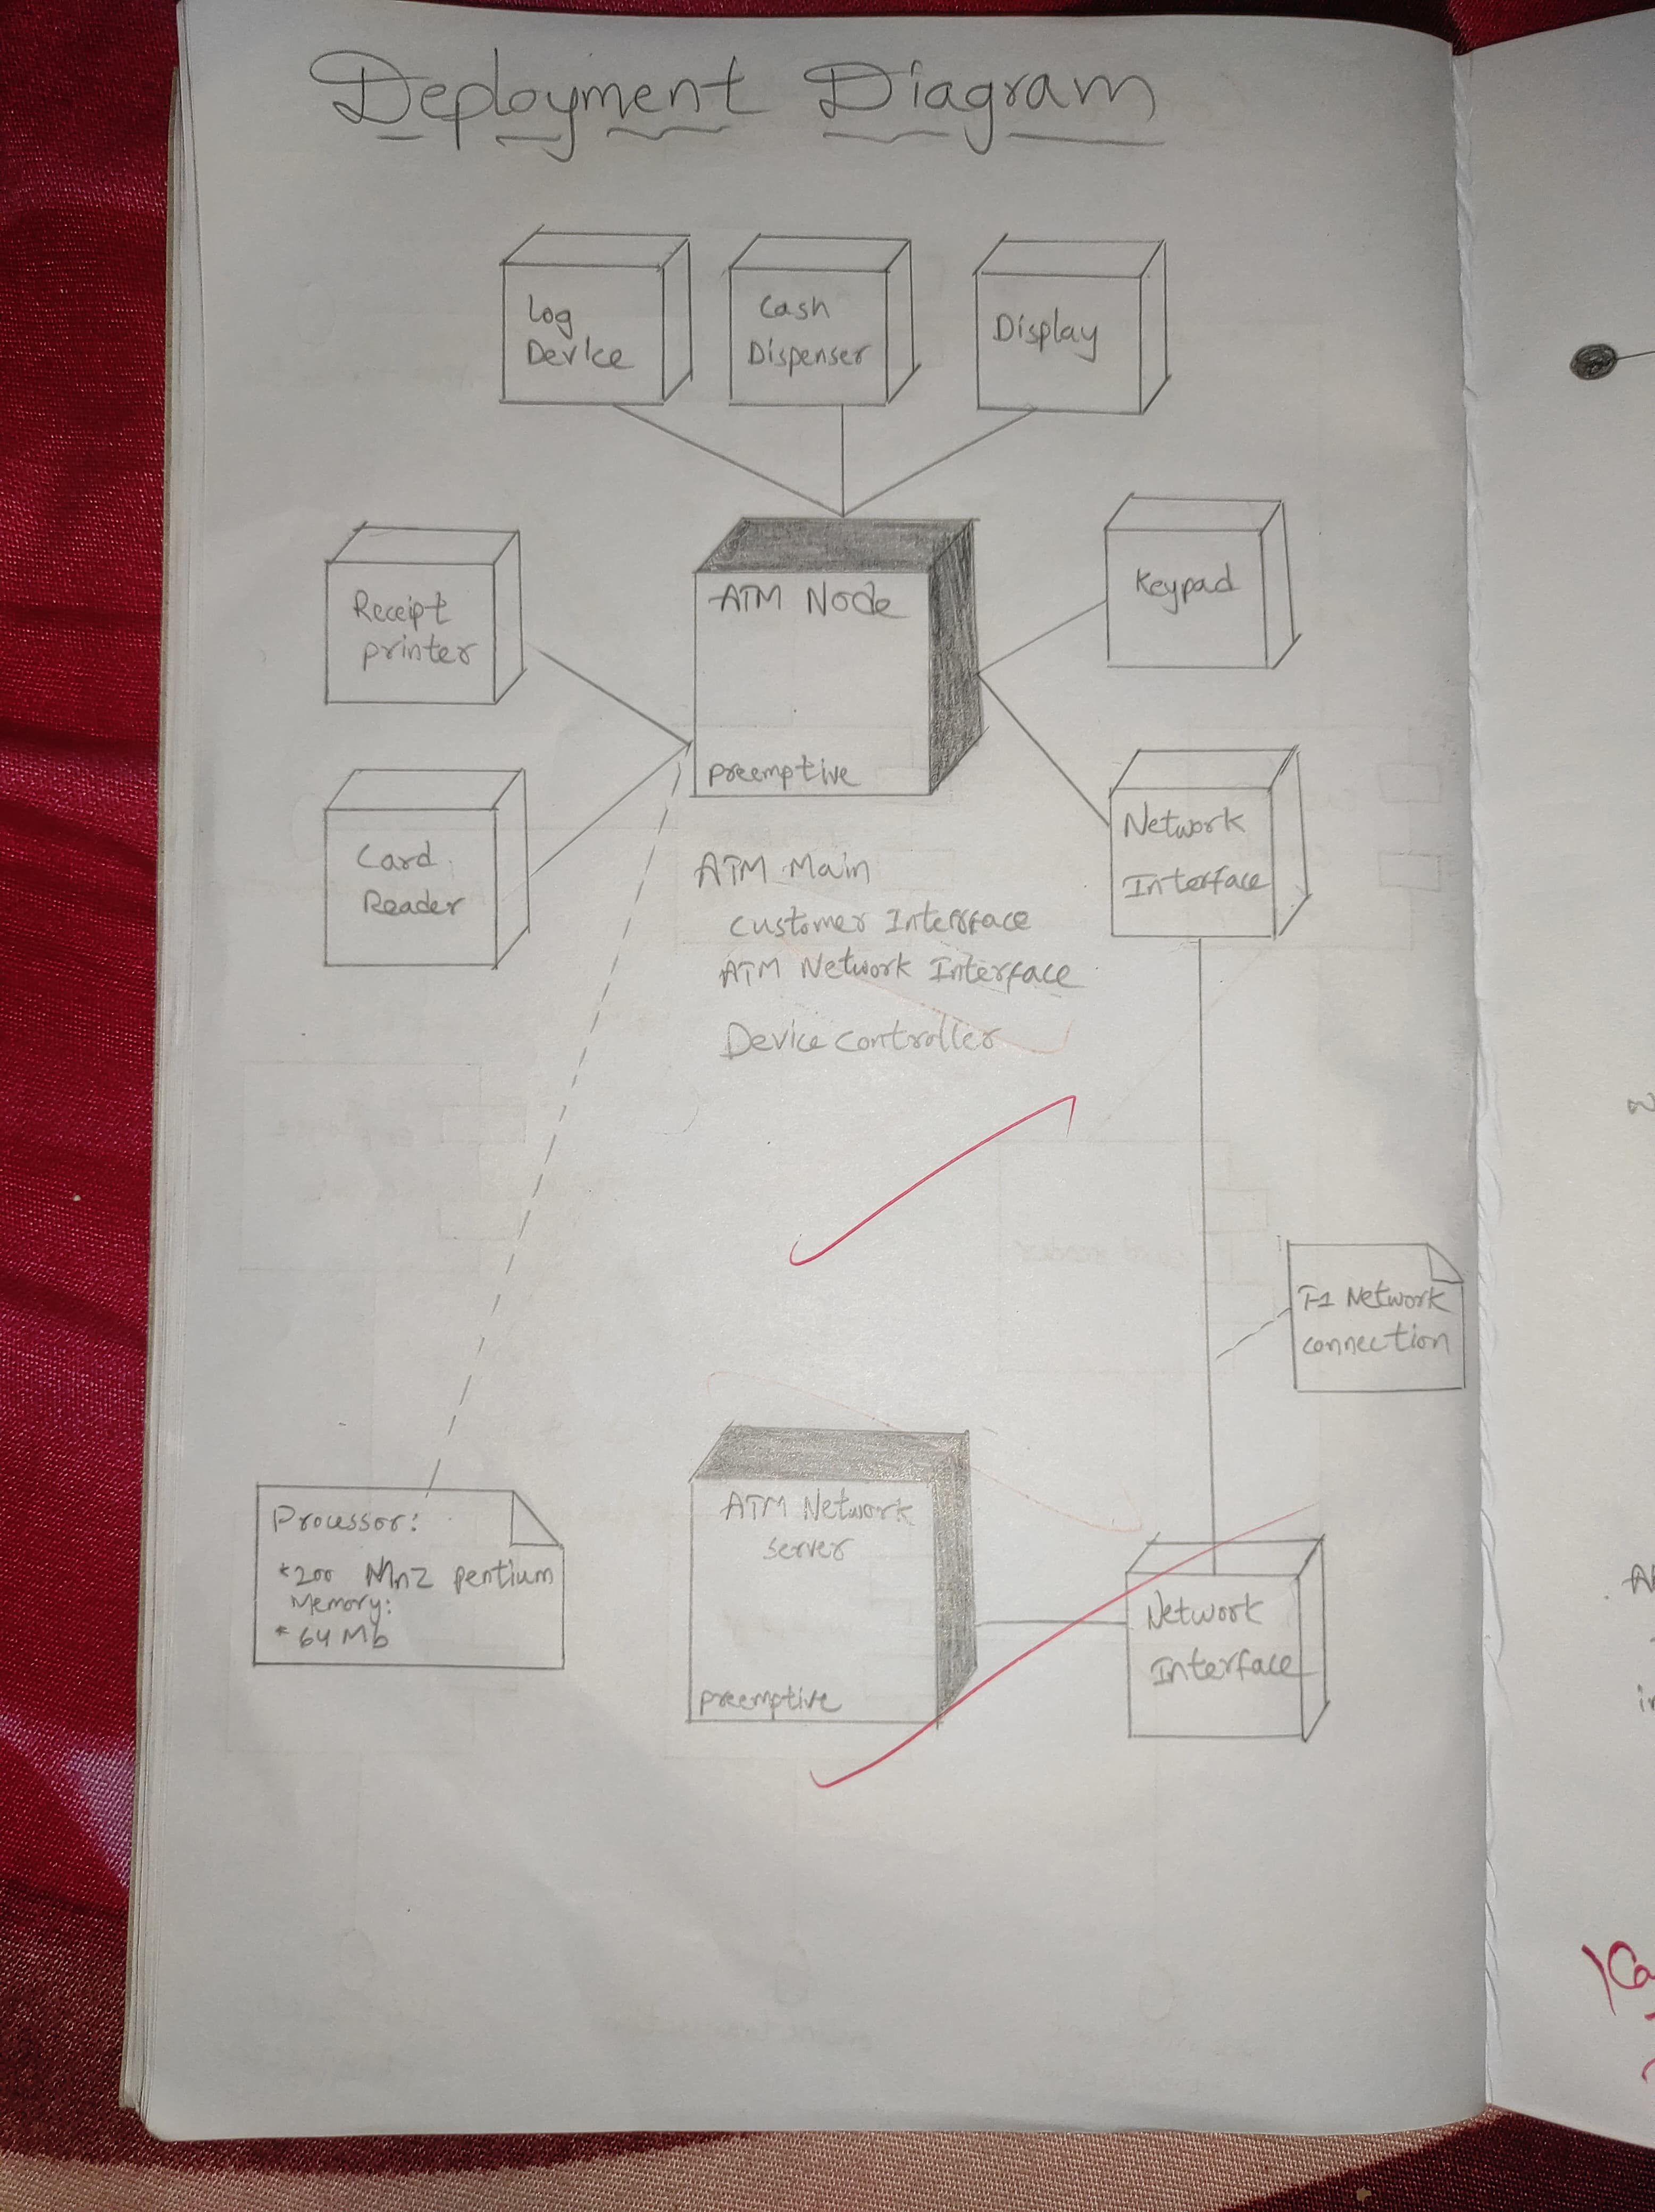 Deployment Diagram
Log
Device
Cash
Dispenser
Display
Receipt
printer
ATM Node
preemptive
Keypad
Card
Reader
Network
Interface
ATM Main
Customer Interface
ATM Network Interface
Device controller
T-1 Network
connection
Processor:
*200 MnZ pentium
Memory:
* 64 Mb
ATM Network
server
preemptive
Network
Interface